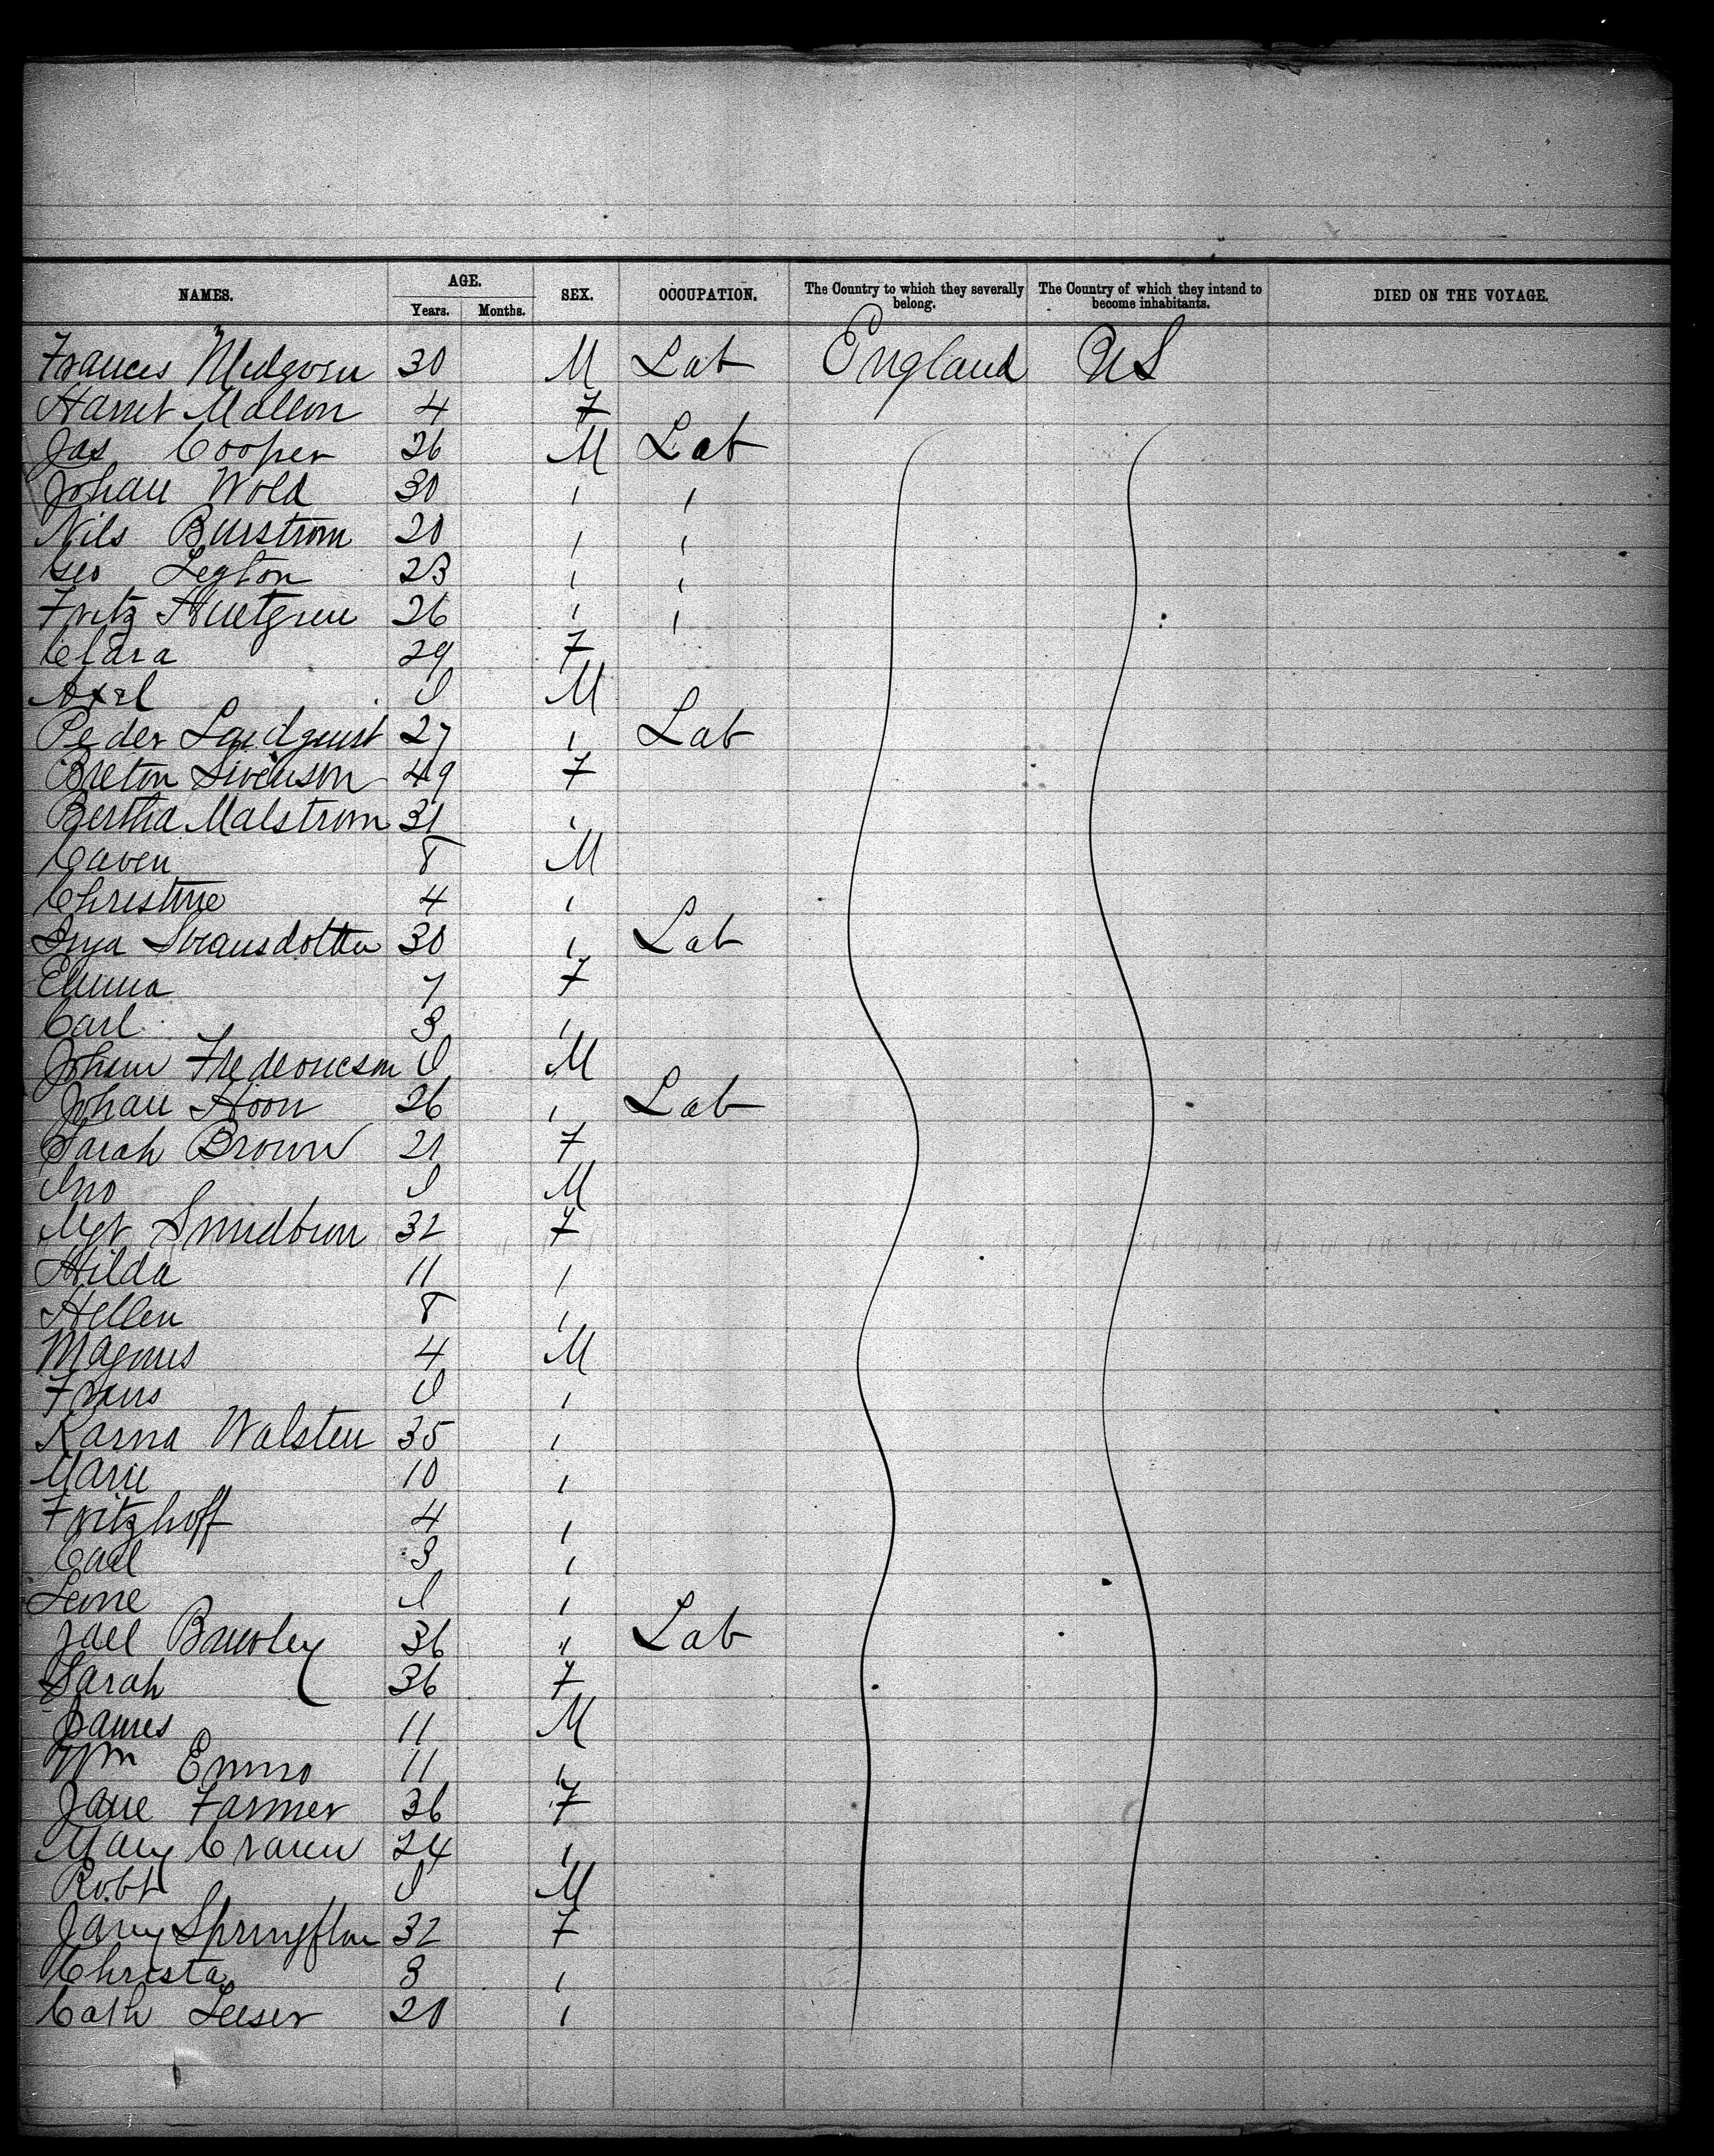 NAMES. AGE. SEX. OCCUPATION. The Country to which they severally belong. The Country of which they intend to become inhabitants. DIED ON THE VOYAGE.
Years. Months.
Frances 30 M Lab England US
Harriet Mallon 4 F
Jas Cooper 26 M Lab
Johan Wold 30 " "
Nils Burstrom 20 " "
Geo Legton 23 " "
Fritz Hultgren 26 " "
Clara 29 F
Axel M
Peder Lindquist 27 " Lab
Breton Swenson 49 F
Bertha Malstrom 31 "
8 M
Christine 4 "
Inga Svansdotter 30 " Lab
Emma 7 F
Carl 3 "
Johan Fredericson M
Johan Hoon 26 " Lab
Sarah Brown 21 F
Jno M
Mgt 32 F
Hilda 11 "
Hellen 8 "
Magnus 4 M
Frans "
Karna Walsten 35 "
Marie 10 "
Fritzhoff 4 "
Carl 3 "
"
36 " Lab
Sarah 36 F
James 11 M
Wm 11 "
Jane Farmer 36 F
Mary 24 "
Robt M
32 F
Christa 3 "
Cath Leeser 20 "